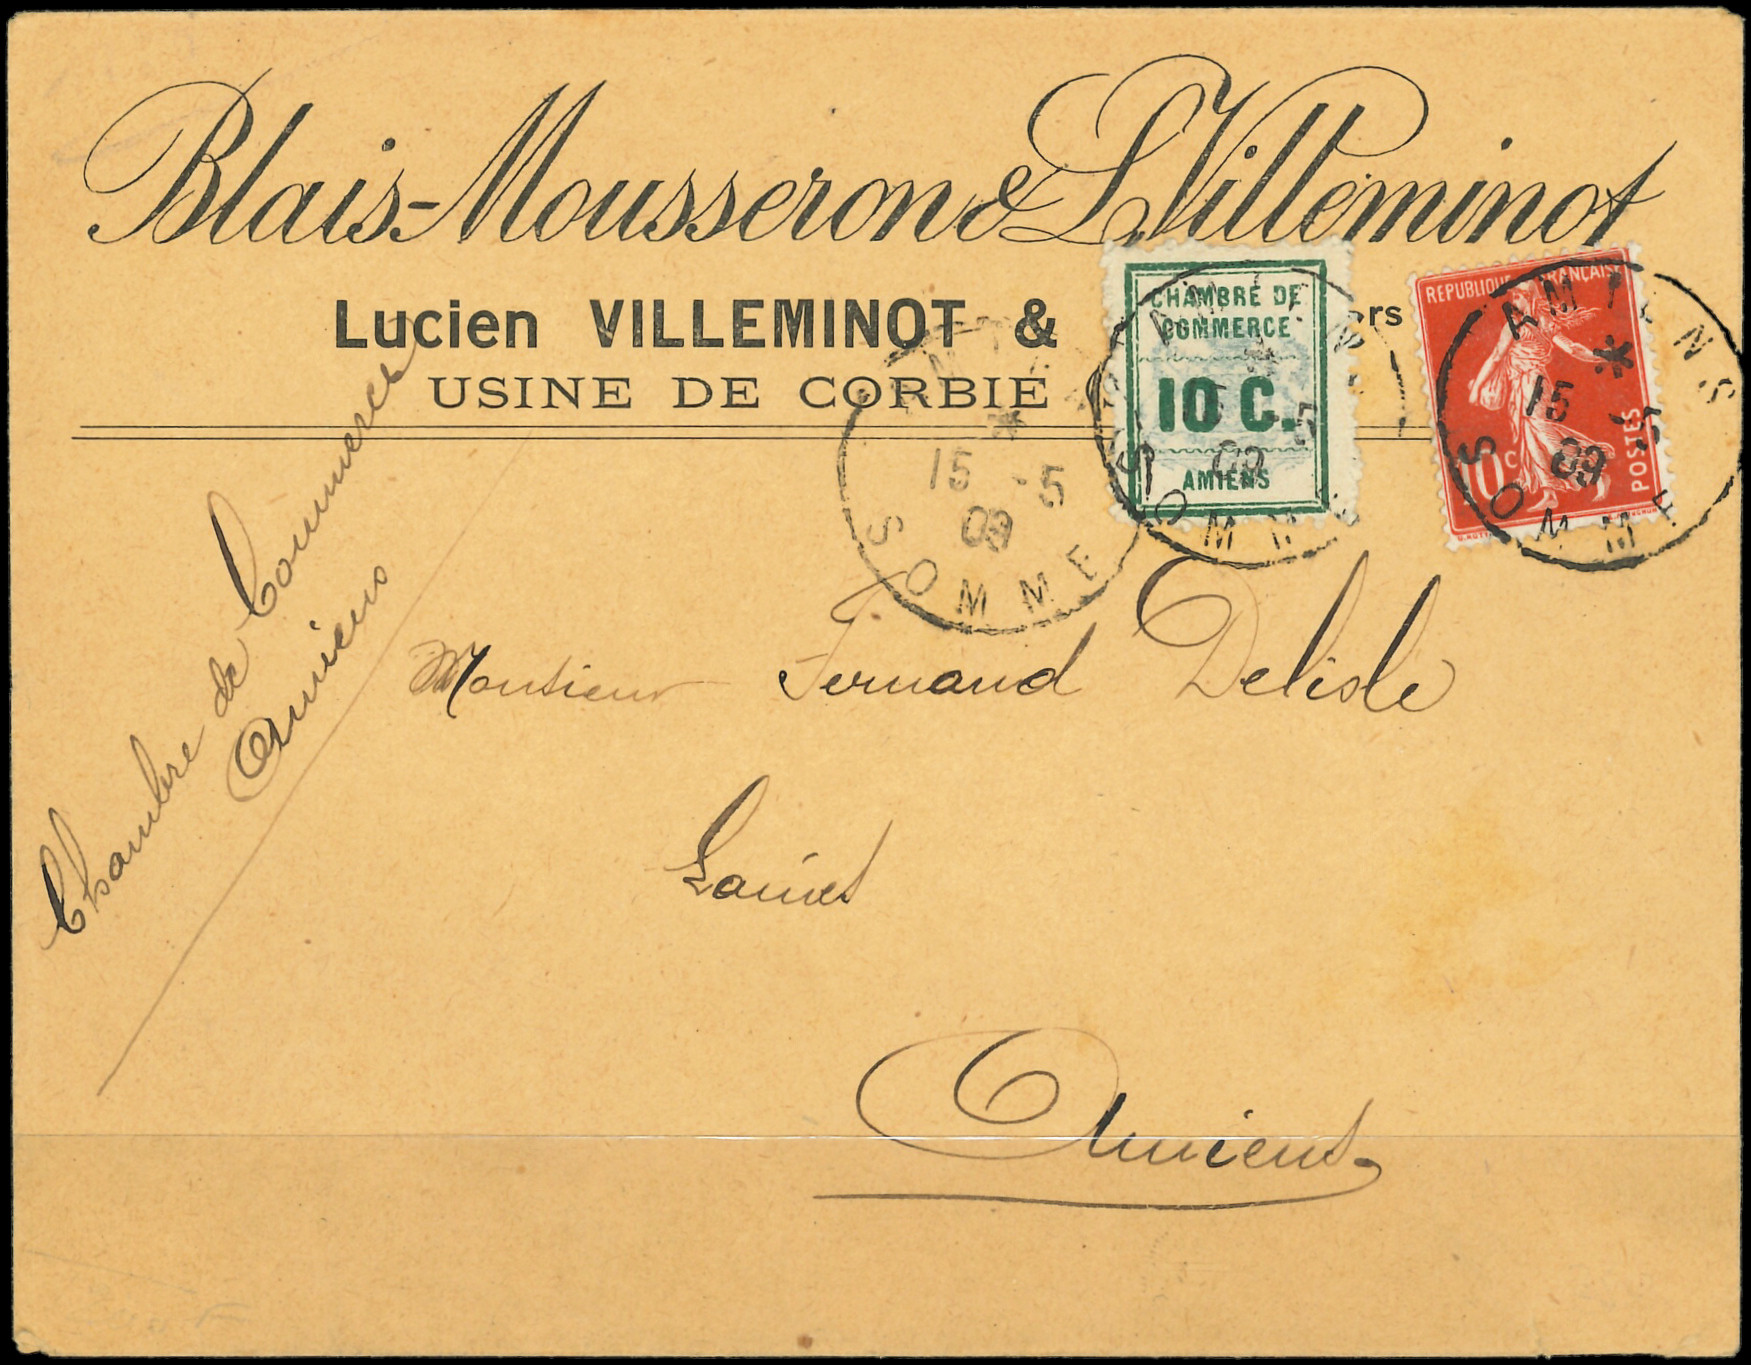 Blais-Mousseron & L. Villeminot
Lucien VILLEMINOT &
USINE DE CORBIE
CHAMBRE DE
COMMERCE
10 C.
AMIENS
REPUBLIQUE FRANÇAISE
10 c
POSTES
AMIENS
15 -5
09
SOMME
AMIENS
15 -5
09
SOMME
15 -5
09
SOMME
Chambre de Commerce
Amiens
Monsieur Fernand Delisle
Amiens